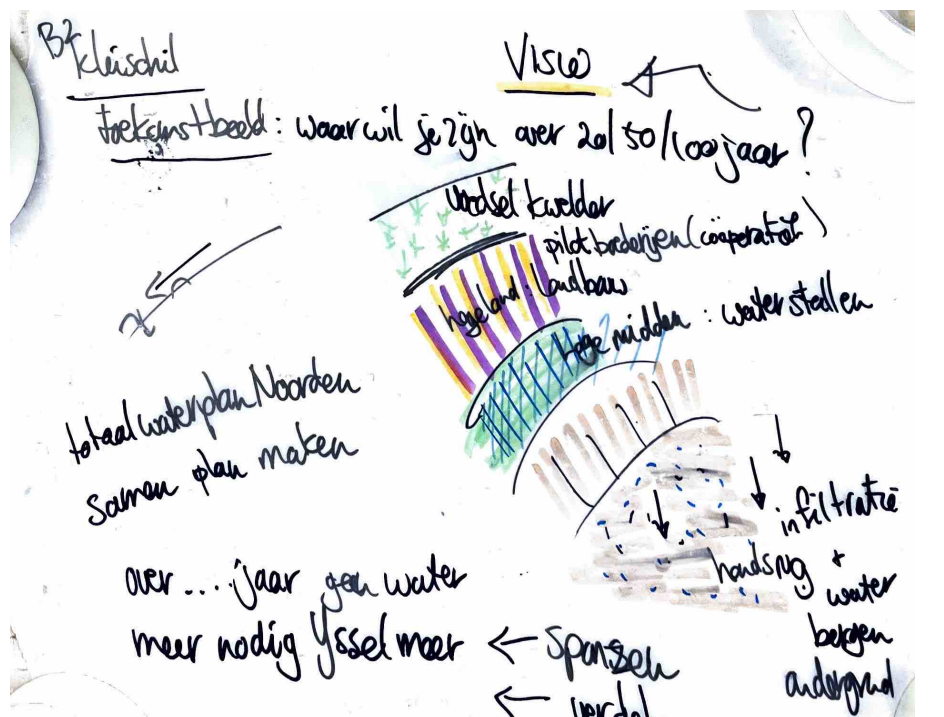 B2
Kleischil
Visie
toekomstbeeld: waar wil je zijn over 20/50/100 jaar?
voedsel kwelder
pilot boerderijen (coöperatief)
hoge land: landbouw
hoge midden: water stellen
totaal waterplan Noorden
samen plan maken
infiltratie
+
water
bergen
ondergrond
hondsrug
over .... jaar geen water
meer nodig IJsselmeer ← sponzen
←